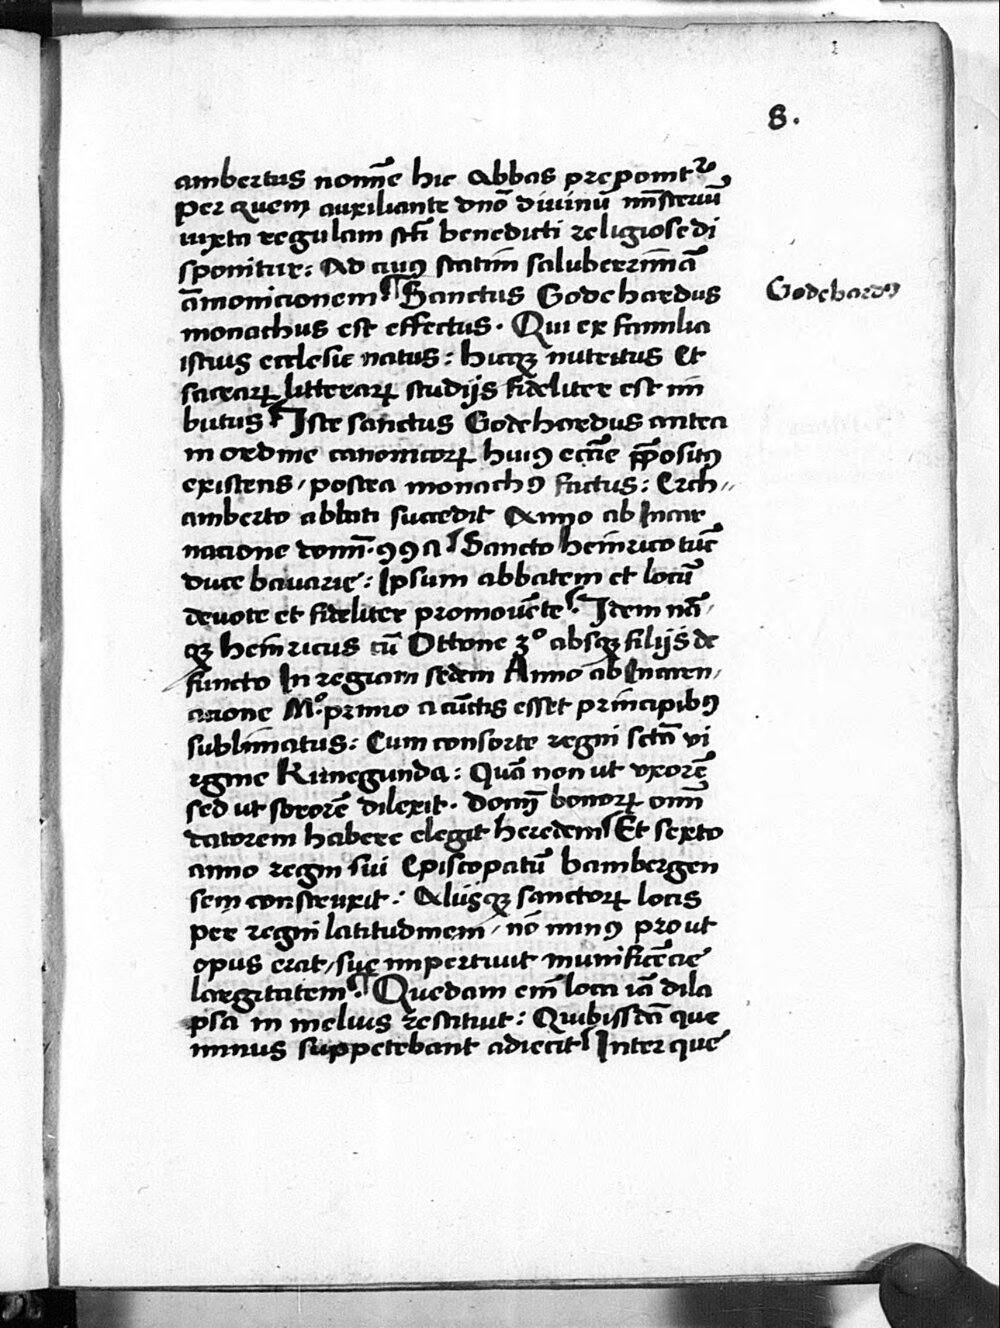 8.
ambertus nom̄e hic Abbas preponit᷑
per quem auxiliante dn̄o diuinū mn̄steriū
iuxta regulam sc̄ti benedicti religiose di
sponitur: Ad cuiꝰ statim saluberrimā
ām̄onicionem Sanctus Godehardus
Godehardꝰ
monachus est effectus. Qui ex familia
istius ecclesie natus: hicqꝫ nutritus Et
sacrarꝝ litterarꝝ studijs fideliter est im
butus Iste sanctus Godehardus antea
in ordine canonicorꝝ huiꝰ eccīe p̄positꝰ
existens, postea monachꝰ factus: Erch〃
amberto abbati succedit Anno ab Incar
nacione domī. 991 Sancto heinrico tūc
duce bauarie: Ipsum abbatem et locū
deuote et fideliter promouēte. Idem nā,
qꝫ heinricus cū Ottone 3º absqꝫ filijs de
functo In regiam sedem Anno ab Incarn,
acione Mº. primo a cūctis esset principibꝰ
sublimatus: Cum consorte regni sctā vi
rgine Kunegunda: Quā non ut vxorē
sed ut sororē dilexit. Domī bonorꝝ omī
datorem habere elegit heredem Et sexto
anno regni sui Episcopatū bambergen
sem construxit: Aliisqꝫ sanctorꝝ locis
per regni latitudinem, nō minꝰ prout
opus erat, sue impertiuit munificēcie
largitatem. Quedam em̄ loca iā dila
psa in melius restituit: Quibussdā que
minus suppetebant adiecit Inter que